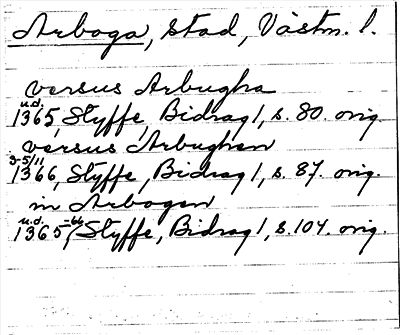 Arboga, stad, Västm. l.
versus Arbugha
u.d.
1365, Styffe, Bidrag 1, s. 80. orig.
versus Arbughen
3-5/11
1366, Styffe, Bidrag 1, s. 87. orig.
in Arbogen
u.d.
1365-66, Styffe, Bidrag 1, s. 104. orig.